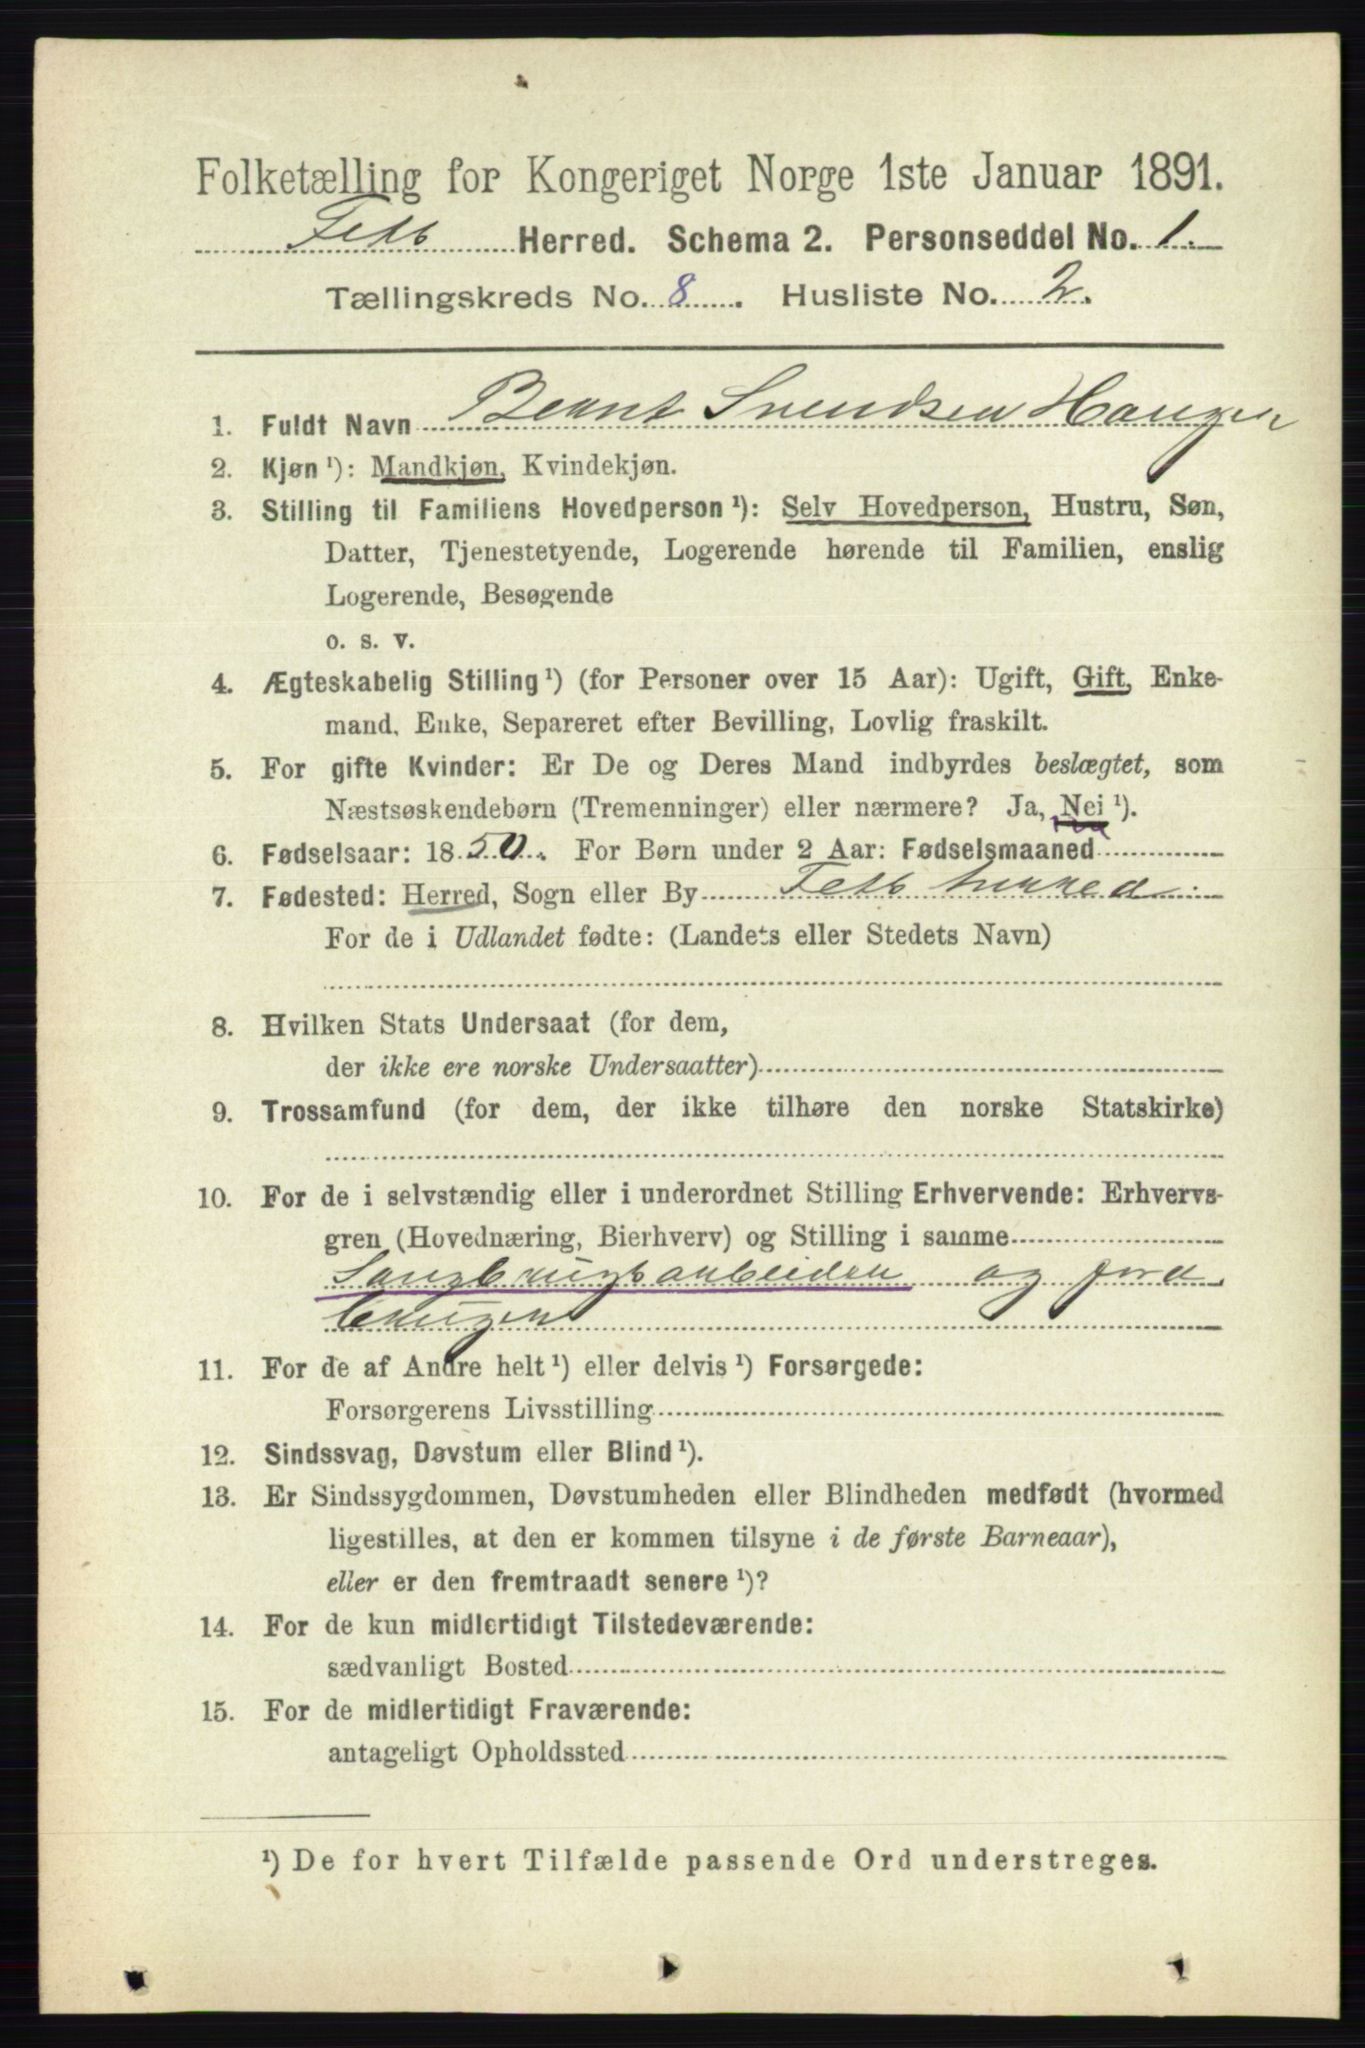 Folketælling for Kongeriget Norge 1ste Januar 1891.
Fetb Herred. Schema 2. Personseddel No. 1.
Tællingskreds No. 8. Husliste No. 2.
1. Fuldt Navn Bernt Svendsen Haugen
2. Kjøn ¹): Mandkjøn, Kvindekjøn.
3. Stilling til Familiens Hovedperson ¹): Selv Hovedperson, Hustru, Søn,
Datter, Tjenestetyende, Logerende hørende til Familien, enslig
Logerende, Besøgende
o. s. v.
4. Ægteskabelig Stilling ¹) (for Personer over 15 Aar): Ugift, Gift, Enke-
mand, Enke, Separeret efter Bevilling, Lovlig fraskilt.
5. For gifte Kvinder: Er De og Deres Mand indbyrdes beslægtet, som
Næstsøskendebørn (Tremenninger) eller nærmere? Ja, Nei ¹).
6. Fødselsaar: 1850. For Børn under 2 Aar: Fødselsmaaned
7. Fødested: Herred, Sogn eller By Fetb herred
For de i Udlandet fødte: (Landets eller Stedets Navn)
8. Hvilken Stats Undersaat (for dem,
der ikke ere norske Undersaatter)
9. Trossamfund (for dem, der ikke tilhøre den norske Statskirke)
10. For de i selvstændig eller i underordnet Stilling Erhvervende: Erhvervs-
gren (Hovednæring, Bierhverv) og Stilling i samme
Saugbrugsarbeider og jord
bruger
11. For de af Andre helt ¹) eller delvis ¹) Forsørgede:
Forsørgerens Livsstilling
12. Sindssvag, Døvstum eller Blind ¹).
13. Er Sindssygdommen, Døvstumheden eller Blindheden medfødt (hvormed
ligestilles, at den er kommen tilsyne i de første Barneaar),
eller er den fremtraadt senere ¹)?
14. For de kun midlertidigt Tilstedeværende:
sædvanligt Bosted
15. For de midlertidigt Fraværende:
antageligt Opholdssted
¹) De for hvert Tilfælde passende Ord understreges.